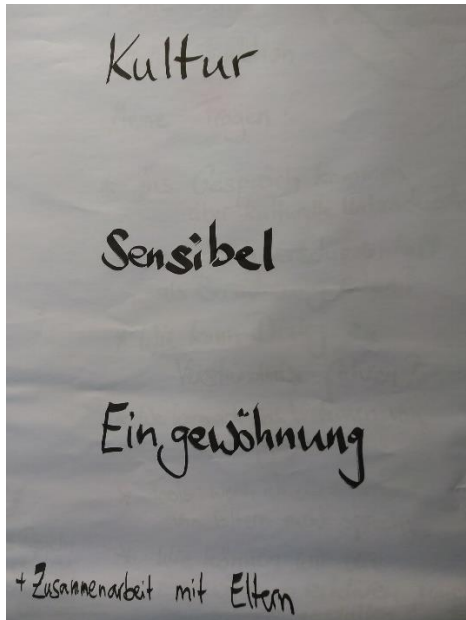 Kultur
Sensibel
Eingewöhnung
+ Zusammenarbeit mit Eltern